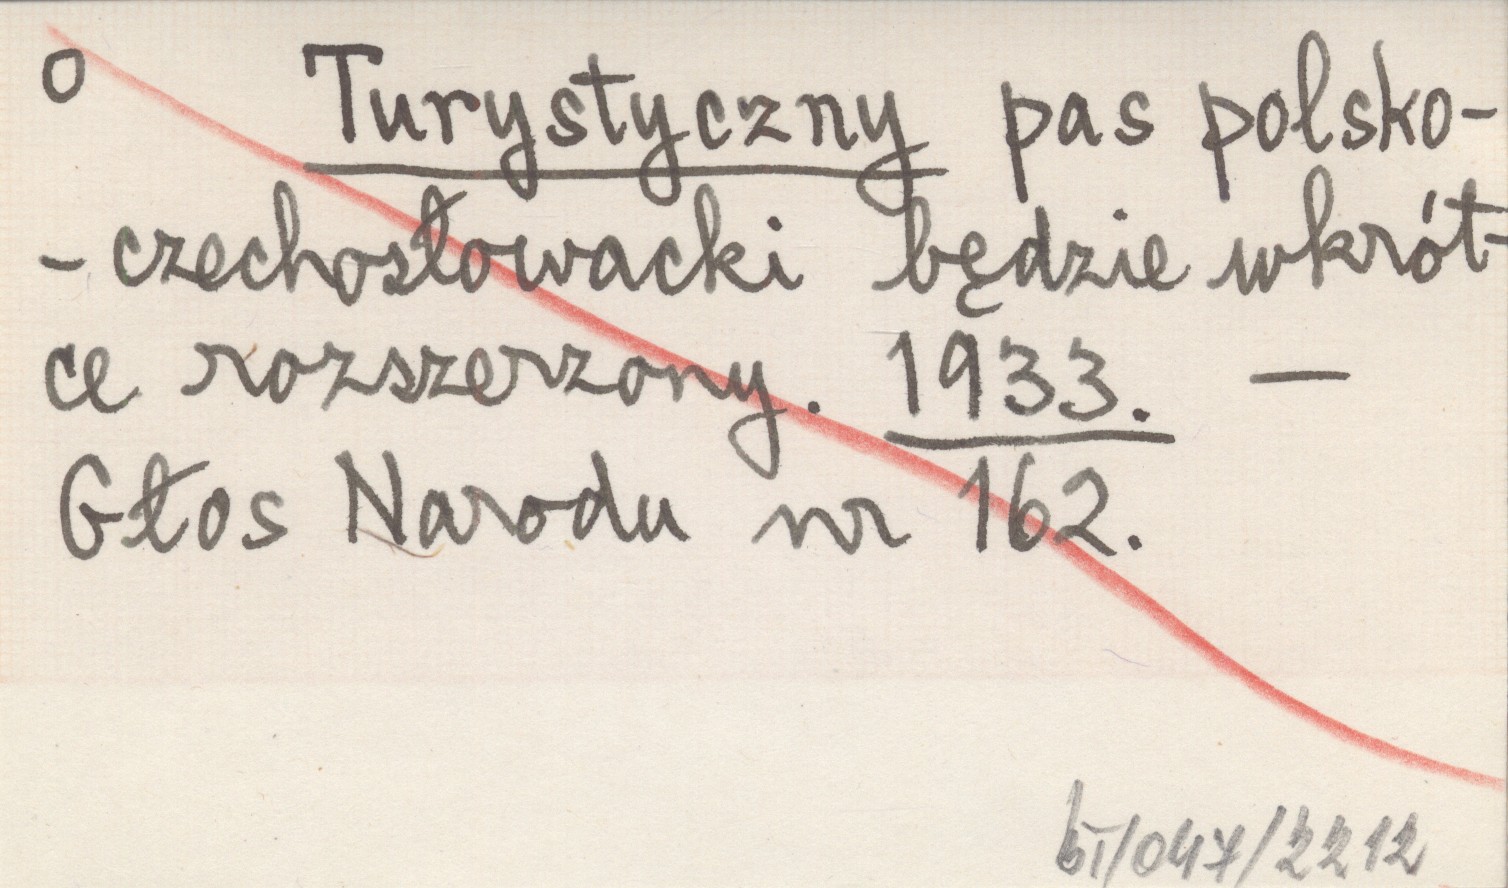 o Turystyczny pas polsko-
-czechosłowacki będzie wkrót-
ce rozszerzony. 1933. —
Głos Narodu nr 162.
bI/047/2212